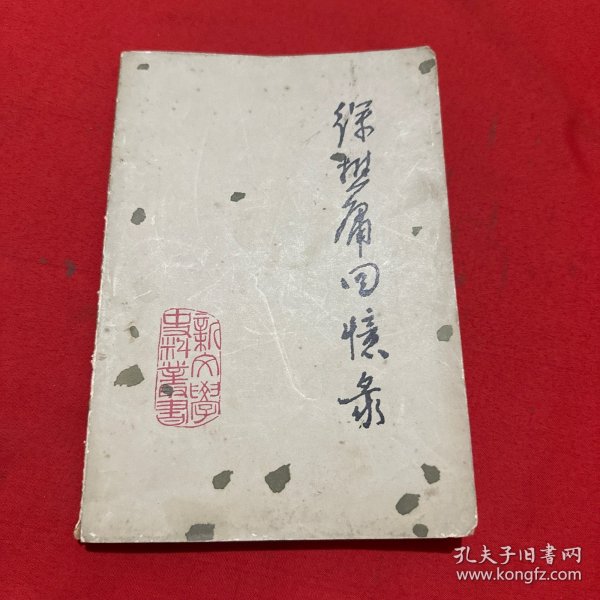 徐懋庸回憶录
新文學
史料叢書
孔夫子旧书网
www.kongfz.com